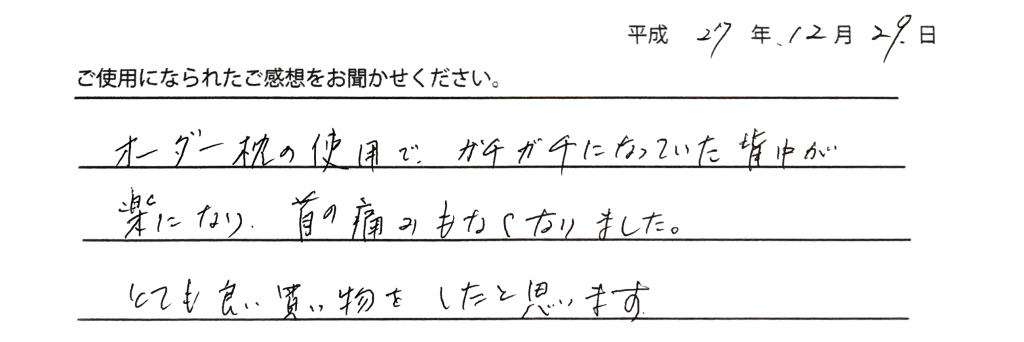 平成 27 年 12 月 29 日
ご使用になられたご感想をお聞かせください。
オーダー枕の使用で、ガチガチになっていた背中が
楽になり、首の痛みもなくなりました。
とても良い買い物をしたと思います